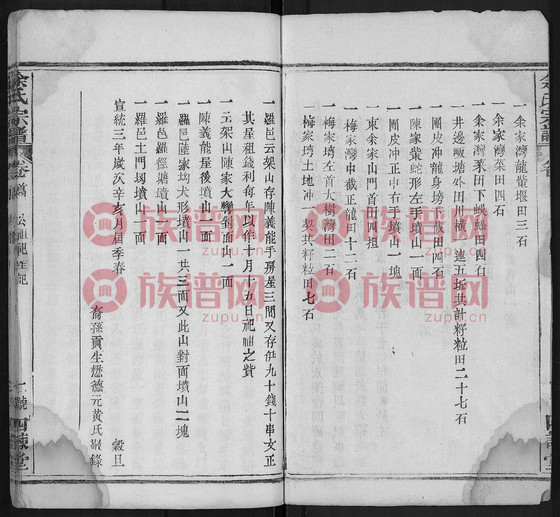 余氏宗譜
一余家灣龍蟞堰田三石
一余家灣菜田四石
一余家灣菜田下蜈蚣田四石
一井邊畈塘外田川櫃一連五坵共計籽粒田二十七石
一團皮冲龍身塝一截田四石
一陳家菜蛇形左手山一面
一團皮冲正中右手墳山一塊
一東余家山門首田四担
一梅家灣中截正龍田十二石
一梅家塆左首大樹灣田二石
一梅家塆土地冲一契共籽粒田七石
一羅邑云架山存陳義能手房屋三間又存伊九十錢十串文正
其屋租錢利每年以作十月十五日祀祖之貲
一云架山陳家大灣對面山一面
一陳義能屋後墳山一面
一羅邑汪家坳犬形墳山一共三面又此山對面墳山一塊
一羅邑徑塘墳山一面
一羅邑土門坳墳山一面
宣統三年歲次辛亥月屆季春
穀旦
裔孫貢生懋德元黃氏敬錄
余氏宗譜
卷
四